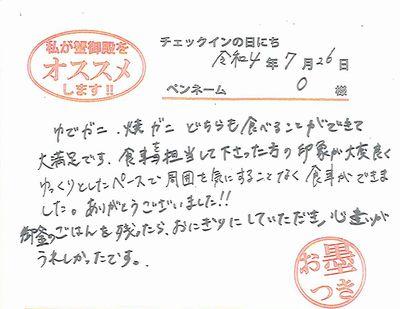 私が蟹御殿を
オススメ
します!!
チェックインの日にち
令和4年7月26日
ペンネーム O 様
ゆでガニ、焼ガニ どちらも食べることができて
大満足です。食事担当して下さった方の印象が大変良く
ゆっくりとしたペースで周囲を気にすることなく食事ができま
した。ありがとうございました!!
御釜のごはんを残ったら、おにぎりにしていただき心遣いが
うれしかったです。
お墨
つき